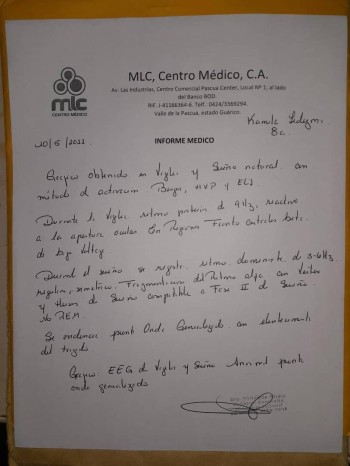 mlc
CENTRO MÉDICO
MLC, Centro Médico, C.A.
Av. Las Industrias, Centro Comercial Pascua Center, Local Nº 1, al lado
del Banco BOD.
RIF. J-41166364-6. Telf.: 0424/3369294.
Valle de la Pascua, estado Guárico.
8a.
10/5/2022
INFORME MEDICO
obtenido en Vigilia y Sueño natural con
método de activación HVP y ELI.
Durante la Vigilia ritmo posterior de 9 Hz, reactivo
a la apertura ocular. En Regiones Fronto centrales beta
de bajo Voltaje
Durante el sueño se registra ritmo dominante de 3-6 Hz
regular, simétrico, Fragmentación del Ritmo alfa con
y Husos de Sueño compatible a Fase II de Sueño
No REM.
Se evidencia punta Onda Generalizada con
del trazado.
EEG de Vigilia y Sueño Anormal punta
onda generalizada